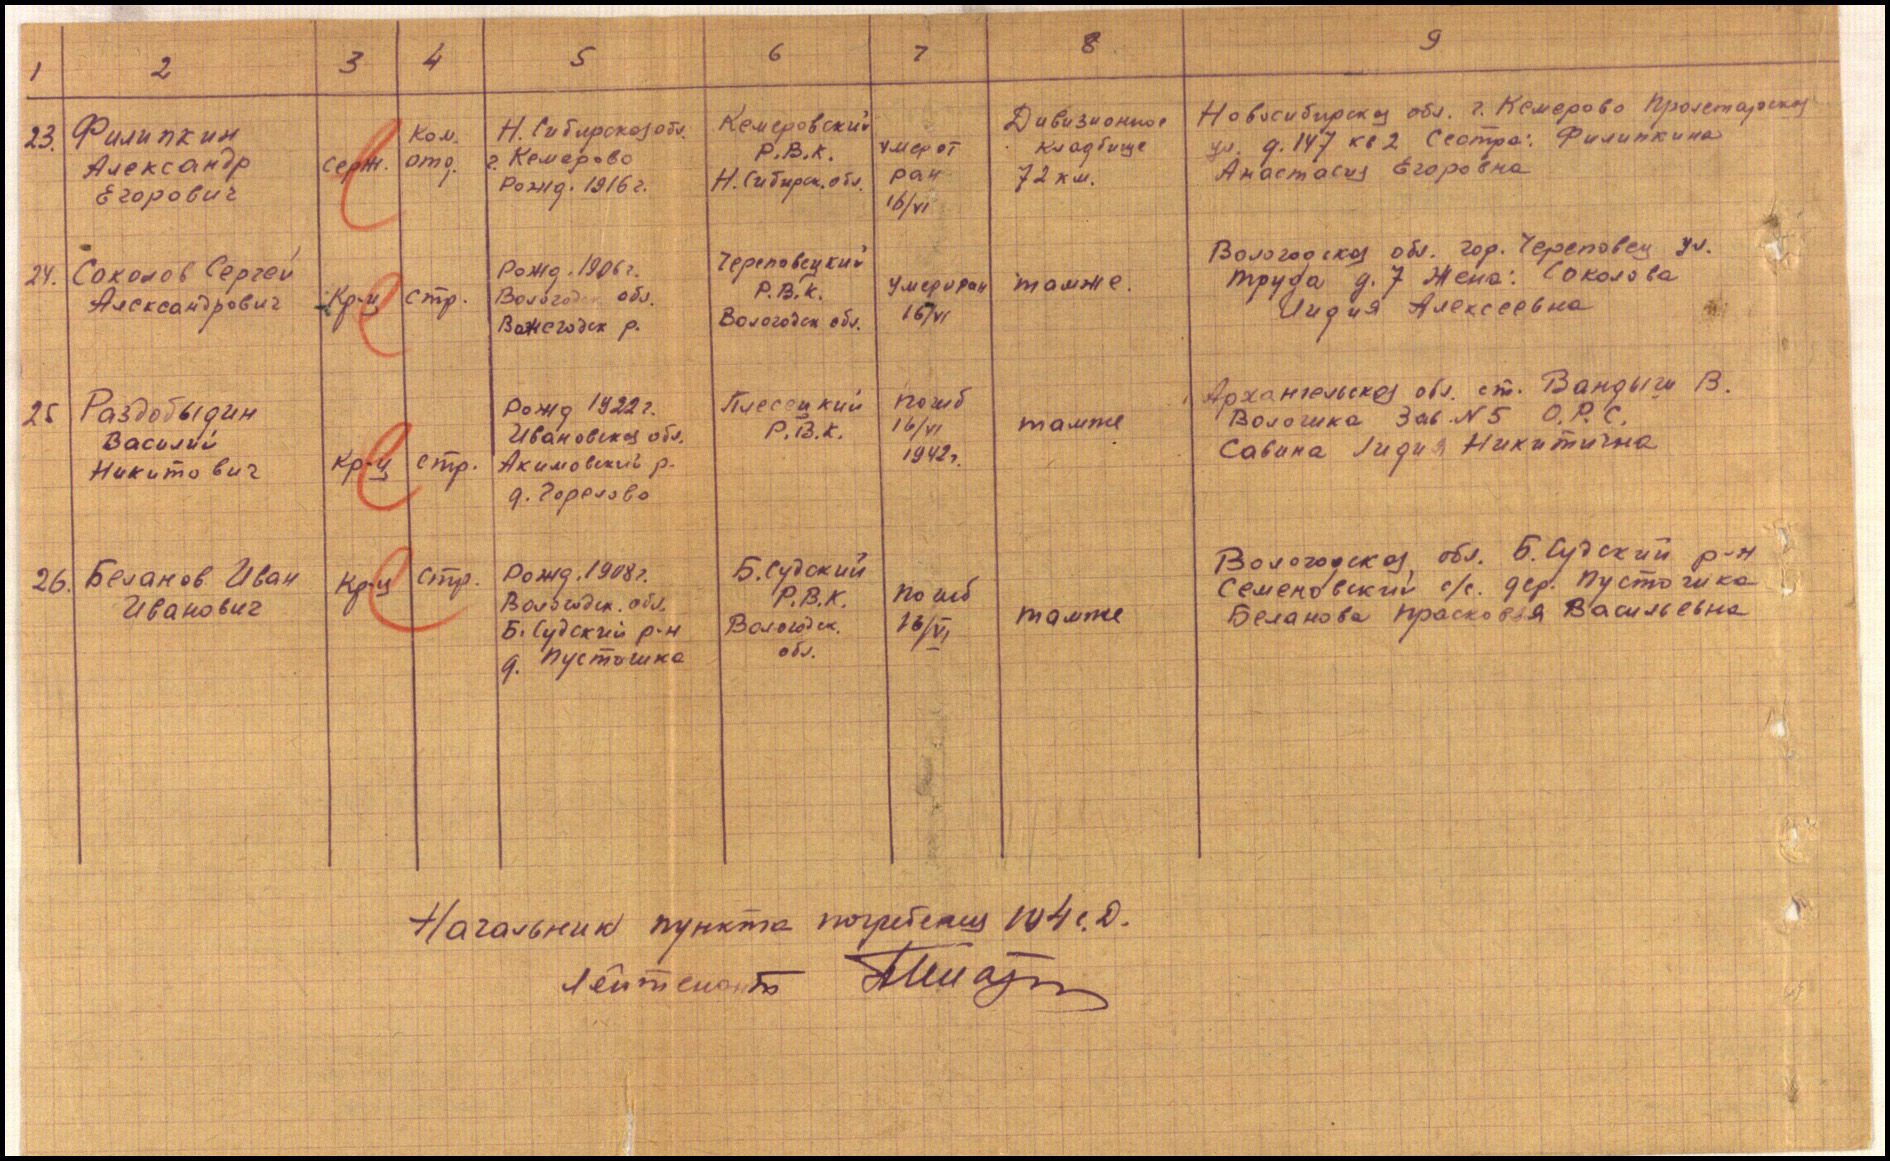 1 2 3 4 5 6 7 8 9
23. Филипкин Александр Егорович
серж.
Ком. отд.
Н. Сибирской обл.
г. Кемерово
Рожд. 1916 г.
Кемеровский
Р.В.К.
Н. Сибирск. обл.
умер от
ран
16/VI
Дивизионное
кладбище
72 км.
Новосибирская обл. г. Кемерово Пролетарская
ул. д. 147 кв 2 Сестра: Филипкина
Анастасия Егоровна
24. Соколов Сергей
Александрович
Кр-ц
стр.
Рожд. 1906 г.
Вологодск обл.
Вожегодск р.
Череповецкий
Р.В.К.
Вологодск обл.
Умер ран
16/VI
тамже.
Вологодская обл. гор. Череповец ул.
Труда д. 7 Жена: Соколова
Лидия Алексеевна
25 Раздобыдин
Василий
Никитович
Кр-ц
стр.
Рожд 1922 г.
Ивановская обл.
Акимовский р.
д. Горелово
Плесецкий
Р.В.К.
Погиб
16/VI
1942 г.
тамже
Архангельская обл. ст. Вандыш В.
Вологжка Зав. N5 О.Р.С.
Савина Лидия Никитична
26. Беланов Иван
Иванович
Кр-ц
Стр.
Рожд. 1908 г.
Вологодск. обл.
Б. Судский р-н
д. Пустошка
Б. Судский
Р.В.К.
Вологодск.
обл.
Погиб
16/VI
тамже
Вологодская обл. Б. Судский р-н
Семеновский с/с. дер. Пустошка
Беланова Прасковья Васильевна
Начальник пункта погребения 104 с.Д.
Лейтенант